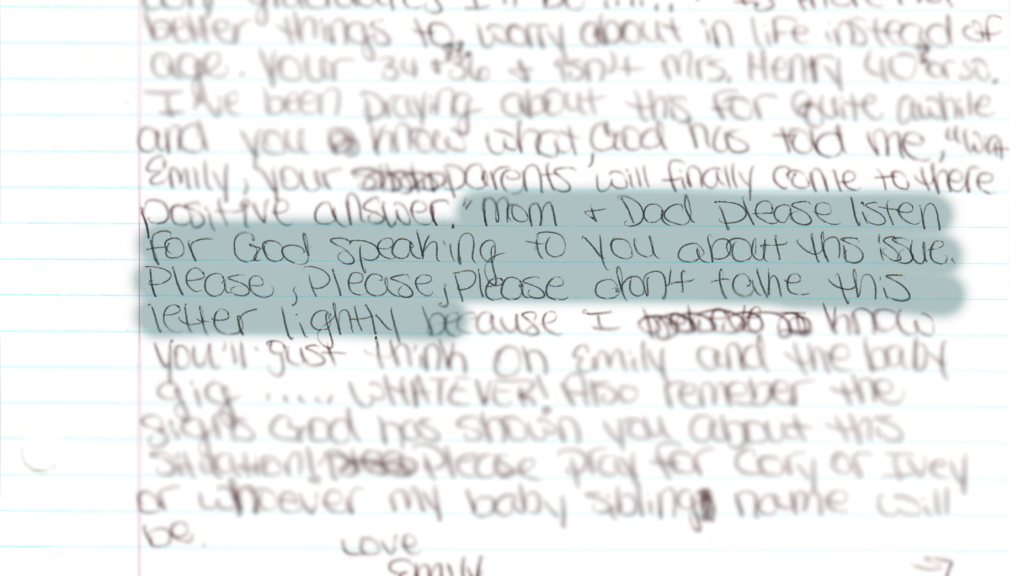 better things to worry about in life instead of
age. Your 34 + 36 + isn't Mrs. Henry 40 or so.
I've been praying about this for quite awhile
and you know what, God has told me, "
Emily, your parents will finally come to there
positive answer." Mom + Dad please listen
for God speaking to you about this issue.
Please, Please, Please don't take this
letter lightly because I know
you'll just think oh Emily and the baby
gig ..... WHATEVER! Also remeber the
signs God has shown you about this
sitiation! Please pray for Cory or Ivey
or whoever my baby sibling name will
be.
Love
Emily